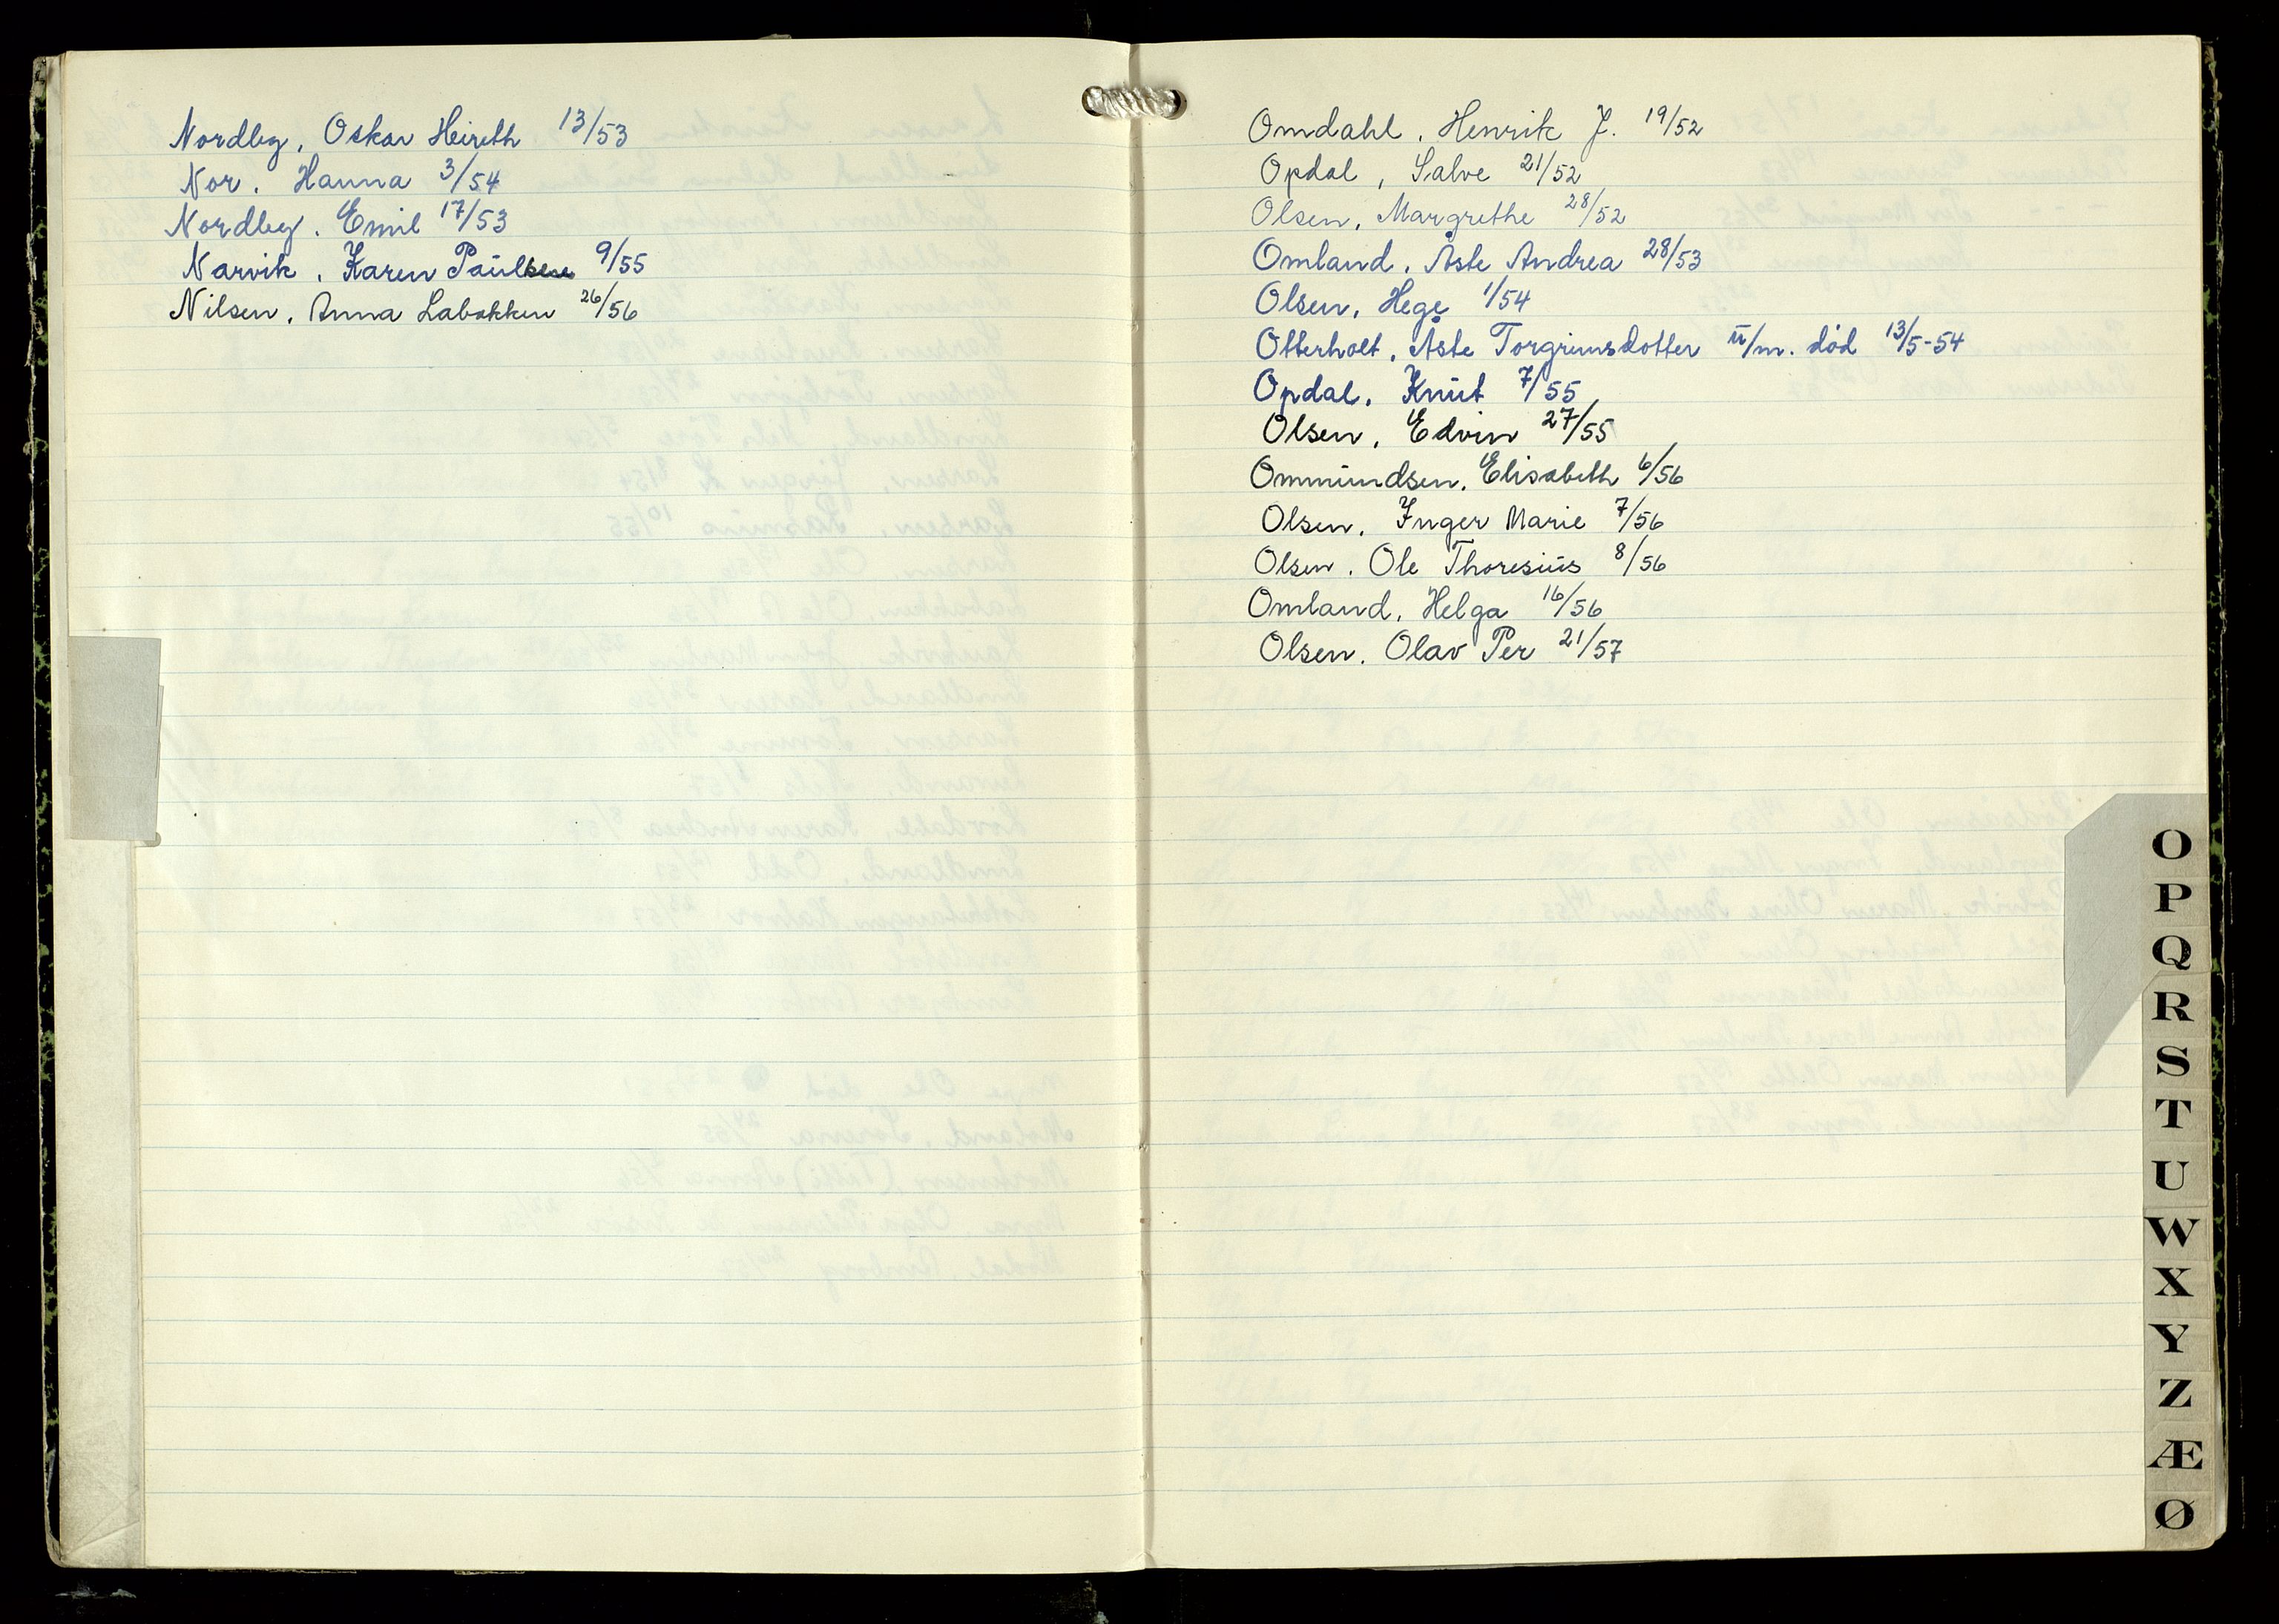 Nordby, Oskar Heireth 13/53
Nor, Hanna 3/54
Nordby, Emil 17/53
Narvik, Karen Paulsen 9/55
Nilsen, Anna Labakken 26/56
Omdahl, Henrik J. 19/52
Opdal, Salve 21/52
Olsen, Margrethe 28/52
Omland, Åste Andrea 28/53
Olsen, Hege 1/54
Otterholt, Åste Torgrimsdotter u/m. död 13/5-54
Opdal, Knut 7/55
Olsen, Edvin 27/55
Ommundsen, Elisabeth 6/56
Olsen, Inger Marie 7/56
Olsen, Ole Thoresius 8/56
Omland, Helga 16/56
Olsen, Olav Per 21/57
O
P
Q
R
S
T
U
W
X
Y
Z
Æ
Ø